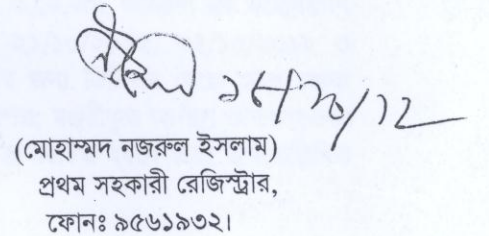 (মোহাম্মদ নজরুল ইসলাম)
প্রথম সহকারী রেজিস্ট্রার,
ফোনঃ ৯৫৬১৯৩২।